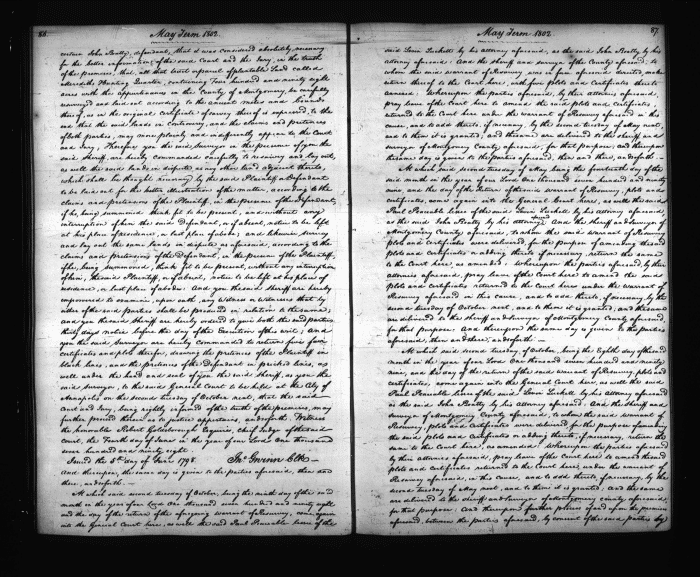 86. May Term 1802.
certain John Beatty, defendant, that it was considered absolutely necessary
for the better information of the said Court and the Jury, in the truth
of the premises, that, all that tract or parcel of plantable Land called
containing Four hundred and ninety eight
Acres with the appurtenances in the County of Montgomery, be carefully
resurveyed and laid out according to the ancient metes and bounds
thereof, as in the original Certificate of survey thereof is expressed, to the
end that the said lands in controversy, and the claims and pretences
of both parties, may more plainly and indifferently appear to the Court
and Jury, Therefore you the said Surveyor in the presence of you the
said Sheriff, are hereby commanded carefully to resurvey and lay out,
as well the said lands in dispute as any other land adjacent thereto,
which shall be thought necessary by the said Plaintiff or Defendant
to be laid out for the better illustration of the matter, according to the
claims and pretensions of the Plaintiff, in the presence of the Defendant,
if he, being summoned think fit to be present, and without any
interruption of him the said Defendant, or if absent, notice to be left
at his place of residence, or last place of abode; and likewise survey
and lay out the same lands in dispute as aforesaid, according to the
claims and pretensions of the Defendant, in the presence of the Plaintiff,
if he, being summoned, think fit to be present, without any interruption
of him, the said Plaintiff, or if absent, notice to be left at his place of
residence, or last place of abode. And you the said Sheriff are hereby
empowered to examine, upon oath, any Witness or Witnesses that by
either of the said parties shall be produced in relation to the same;
and you the said Sheriff are hereby ordered to give both the said parties
thirty days notice before the day of the Execution of this writ; And
you the said Surveyor are hereby commanded to return five fair
certificates and plots thereof, describing the pretences of the Plaintiff in
black lines, and the pretences of the Defendant in pricked lines, as
well under the hand and seal of you the said Sheriff, as you the
said Surveyor, to the said General Court to be held at the City of
Annapolis on the second tuesday of October next, that the said
Court and Jury, being rightly informed of the truth of the premises, may
further proceed therein as to justice appertains, and so forth. Witness
the honorable Robert Goldsborough Esquire, chief Judge of the said
court, the Fourth day of June in the year of our Lord One thousand
seven hundred and ninety eight.
Issued the 8th. day of June 1798. Jno. Gwinn Clk.
And thereupon, the same day is given to the parties aforesaid, then and
there, and so forth.
At which said second tuesday of October, being the ninth day of the said
month in the year of our Lord One thousand seven hundred and ninety eight
and the day of the return of the aforegoing warrant of Resurvey, come again
into the General Court here, as well the said Paul Pencable lessee of the
May Term 1802. 87.
said Lewis Lucketts by his attorney aforesaid, as the said John Beatty by his
attorney aforesaid. And the Sheriff and surveyor of the County aforesaid, to
whom the said warrant of Resurvey was in form aforesaid directed, make
return thereof to the Court here, with four plots and Certificates thereto
annexed. Whereupon the parties aforesaid, by their attornies aforesaid,
pray leave of the Court here to amend the said plots and certificates,
returned to the Court here under the warrant of Resurvey aforesaid in this
cause, and to add thereto, if necessary, by the second tuesday of May next,
and to them it is granted; and the same are delivered to the sheriff and
surveyor of Montgomery County aforesaid, for that purpose; and thereupon
the same day is given to the parties aforesaid, then and there, and so forth.
At which said second tuesday of May, being the fourteenth day of the
said month in the year of our Lord One thousand seven hundred and ninety
nine, and the day of the return of the said warrant of Resurvey, plots and
certificates, come again into the General Court here, as well the said
Paul Pencable lessee of the said Lewis Lucketts by his attorney aforesaid,
as the said John Beatty by his attorney aforesaid. And the Sheriff and surveyor of
Montgomery County aforesaid, to whom the said warrant of Resurvey,
plots and certificates were delivered, for the purpose of amending the said
plots and certificates or adding thereto, if necessary, return the same
to the Court here, as amended: Whereupon the parties aforesaid, by their
attornies aforesaid, pray leave of the Court here to amend the said
plots and certificates returned to the Court here under the warrant of
Resurvey aforesaid in this cause, and to add thereto, if necessary, by the
second tuesday of October next, and to them it is granted, and the same
are delivered to the sheriff and surveyor of Montgomery County aforesaid,
for that purpose. And thereupon the same day is given to the parties
aforesaid, then and there, and so forth.
At which said second tuesday of October, being the Eighth day of the said
month in the year of our Lord One thousand seven hundred and ninety
nine, and the day of the return of the said warrant of Resurvey, plots and
certificates, come again into the General Court here, as well the said
Paul Pencable lessee of the said Lewis Lucketts by his attorney aforesaid
as the said John Beatty by his attorney aforesaid. And the Sheriff and
surveyor of Montgomery County aforesaid, to whom the said warrant of
Resurvey, plots and certificates were delivered for the purpose of amending
the said plots and certificates or adding thereto, if necessary, return the
same to the Court here, as amended. Whereupon the parties aforesaid
by their attornies aforesaid, pray leave of the Court here to amend the said
plots and certificates returned to the Court here, under the warrant of
Resurvey aforesaid, in this cause, and to add thereto, if necessary, by the
second tuesday of May next, and to them it is granted; And the same
are delivered to the sheriff and surveyor of Montgomery County aforesaid,
for that purpose: And thereupon further process of and upon the premises
aforesaid, between the parties aforesaid, by consent of the said parties by